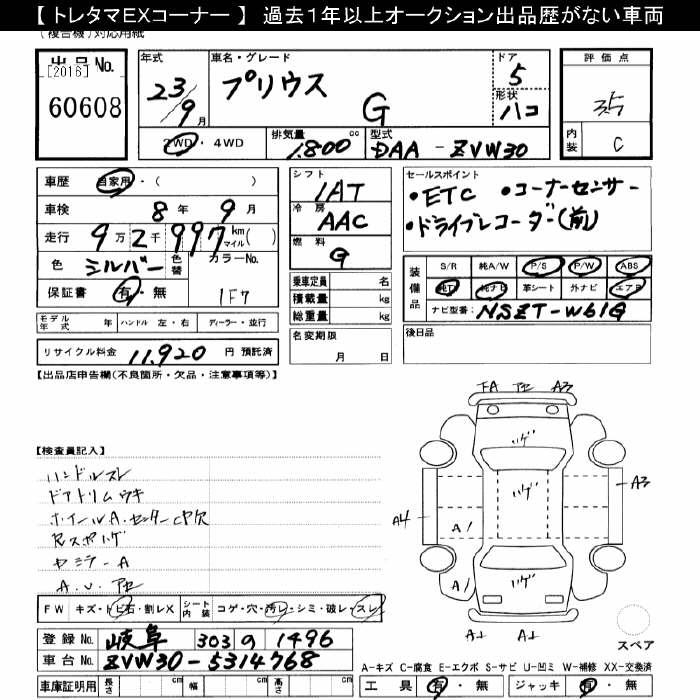 【 トレタマEXコーナー 】 過去1年以上オークション出品歴がない車両
(複合機) 対応用紙
出品No.
[2016]
60608
年式
23/9月
車名・グレード
プリウス
G
ドア
5
形状
ハコ
評価点
3.5
内装
C
2WD・4WD
排気量
1.800 cc
型式
DAA-ZVW30
車歴 自家用・( )
車検 8年 9月
走行 9万2千997 km マイル( )
色 シルバー 色替 カラーNo.
1F7
保証書 有・無
シフト
1AT
冷房
AAC
燃料
G
セールスポイント
・ETC ・コーナーセンサー
・ドライブレコーダー(前)
装備品
S/R 純A/W P/S P/W ABS
純T 純ナビ 革シート 外ナビ エアB
ナビ型番: NSZT-W61G
乗車定員 名
積載量 kg
総重量 kg
モデル年式 年 ハンドル 左・右 ディーラー・並行
リサイクル料金 11,920 円 預託済
名変期限
月 日
後日品
【出品店申告欄(不良箇所・欠品・注意事項等)】
FA A3
【検査員記入】
ハンドルスレ
ドアトリムウキ
ホイールA.センターCP欠
Rスポハゲ
A.U.
ハゲ
ハゲ
ハゲ
A4
A3
A1
A1
FW キズ・トビ石・割レX シート内装 コゲ・穴・汚レ・シミ・破レ・スレ
登録No. 岐阜 303 の 1496
車台No. ZVW30-5314768
スペア
A-キズ C-腐食 E-エクボ S-サビ U-凹ミ W-補修 XX-交換済
車庫証明用 長さ cm 幅 cm 高さ cm
工具 有・無 ジャッキ 有・無